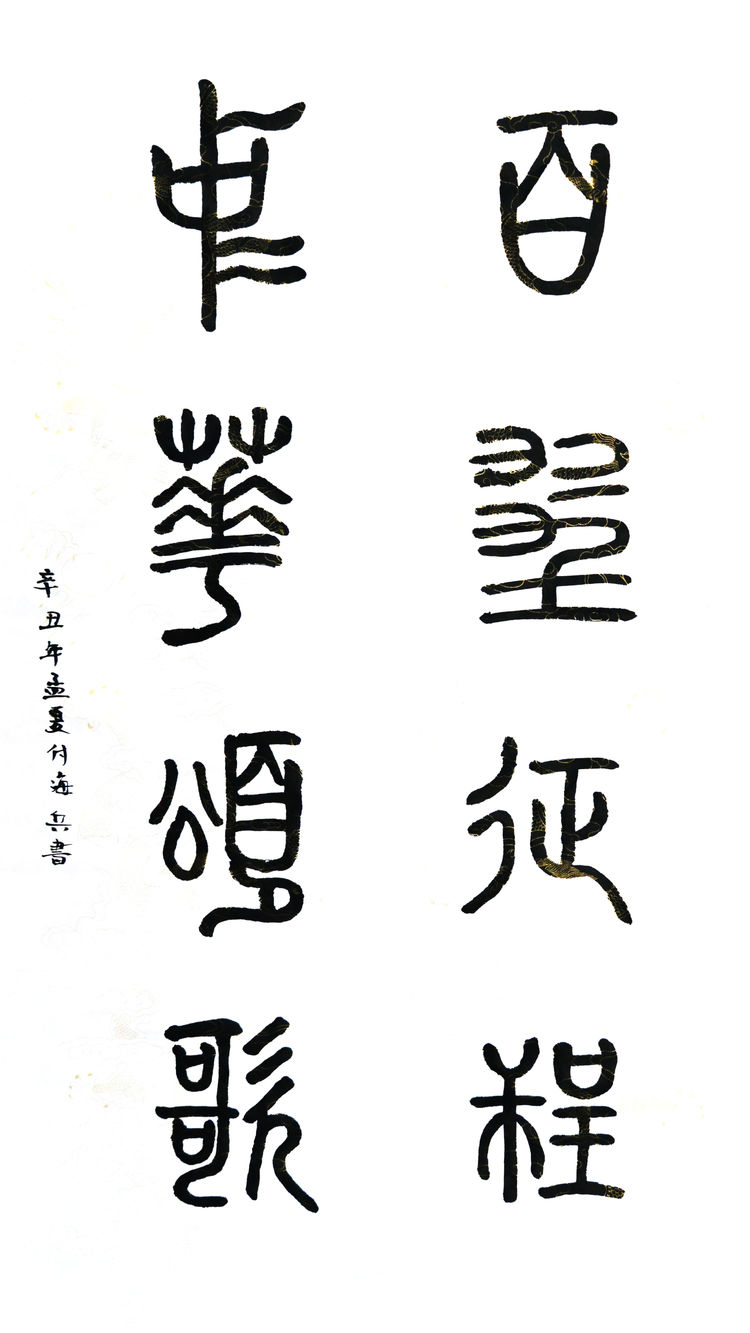 百征程
中華頌歌
辛丑年孟夏付海兵書